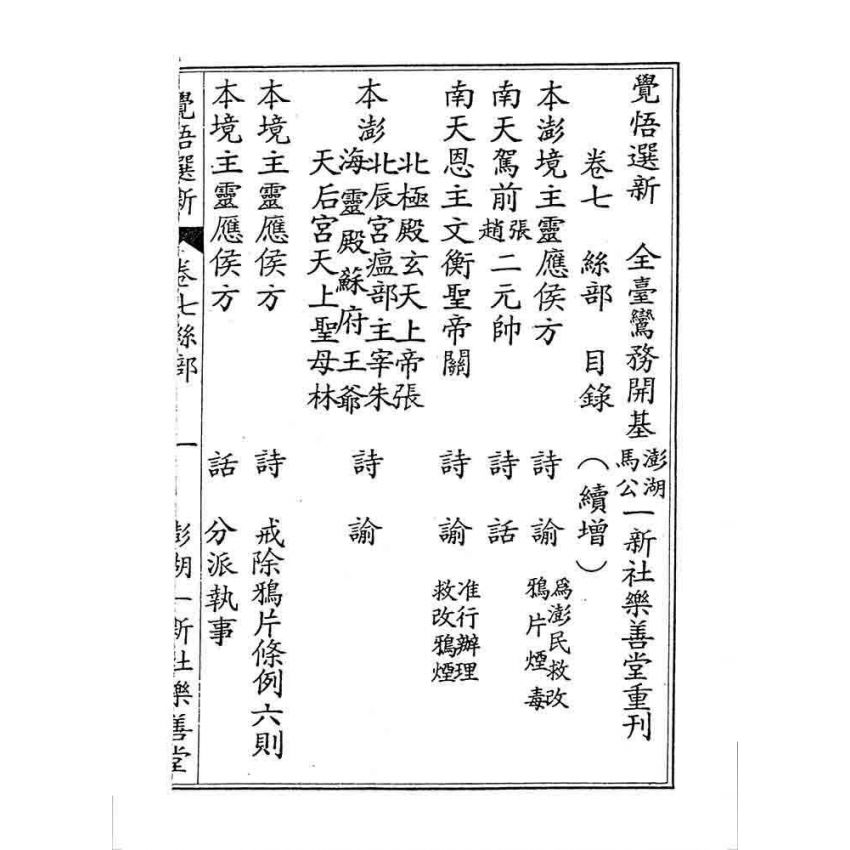 覺悟選新　全臺鸞務開基澎湖馬公一新社樂善堂重刊
卷七　絲部　目錄　（續增）
本澎境主靈應侯方　詩　諭　爲澎民救改鴉片煙毒
南天駕前張趙二元帥　詩　話
南天恩主文衡聖帝關　詩　諭　准行辦理救改鴉煙
本澎
北極殿玄天上帝張
北辰宮瘟部主宰朱
海靈殿蘇府王爺
天后宮天上聖母林
詩　諭
本境主靈應侯方　詩　戒除鴉片條例六則
本境主靈應侯方　話　分派執事
覺悟選新　卷七絲部　一　澎湖一新社樂善堂